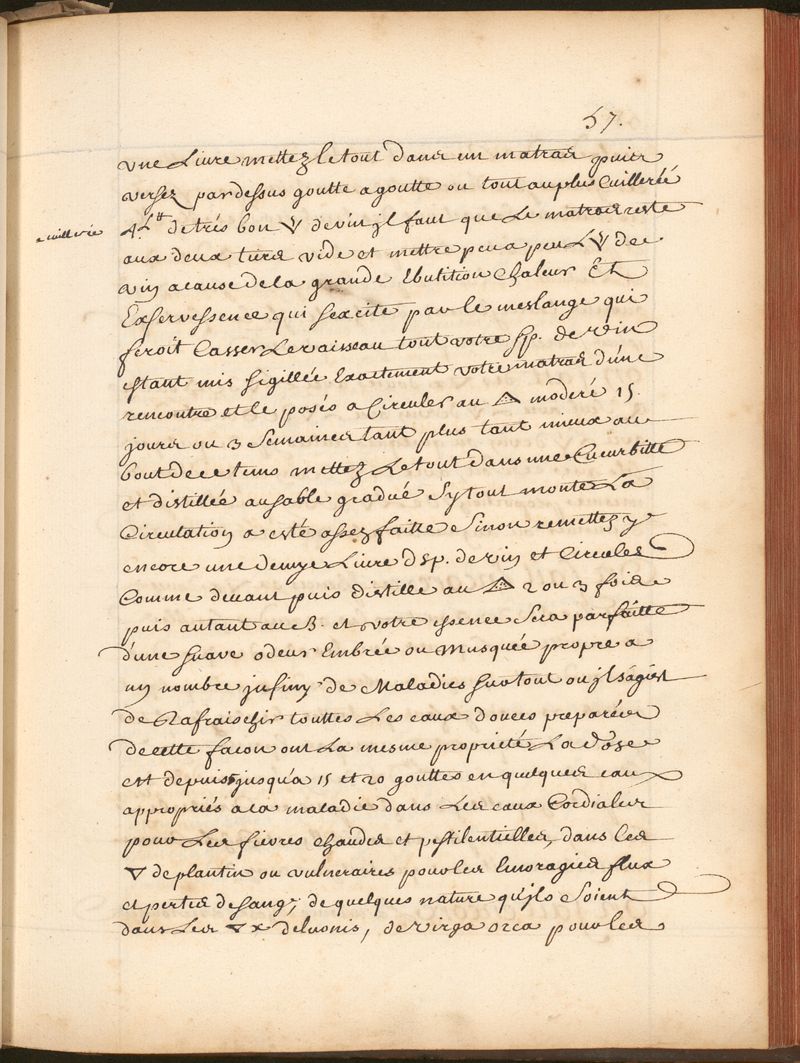 57.
vne Livre mettez le tout dans un matras puis
versez par dessus goutte a goutte ou tout au plus Cuillerée
a cuillerée
4. ℔ de trés bon 🜄 de vin jl faut que Le matras reste
aux deux tiers vide et mettre peu a peu L de
vin a cause de la grande Ebulition Chaleur Et
Exfervessence qui sexcite par le meslange qui
feroit Casser Le vaisseau tout votre Sp. de vin
estant mis sigillée Exactement votre matras d'une
rencontre et le posés a Circuler au 🜂 moderé 15
jours ou 3 Semaines tant plus tant mieux au
bout de ce tems mettez Le tout dans une Cucurbitte
et distillée au sable gradué Sy tout monte La
Circulation a esté assez faitte Sinon remettez y
encore une demye Livre d'Sp. de vin et Circules
Comme devant puis distille au 🜂 2 ou 3 fois
puis autant au B. et votre essence Sera parfaitte
d'une suave odeur Embrée ou Musquée propre a
un nombre jnfiny de Maladies surtout ou jl s'agist
de Rafraischir touttes Les eaux douces preparées
de cette facon ont La mesme proprieté La doze
est depuis jusqu'a 15 et 20 gouttes en quelques eaux
appropriés a la maladie dans Les eaux Cordiales
pour Les fievres chaudes et pestilentielles, dans Les
🜄 de plantin ou vulneraires pour les Emoragies flux
et pertes de sang, de quelques nature qu'jls Soient
dans Les 🜄x de , de virga orea pour les